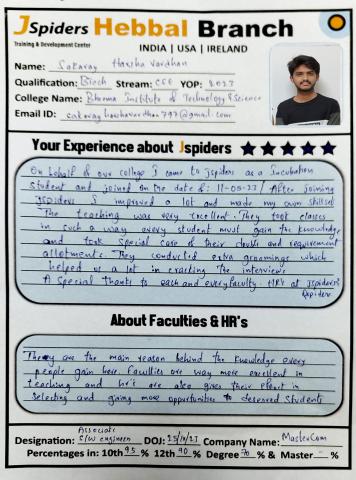 JSpiders Hebbal Branch
Training & Development Center
INDIA | USA | IRELAND
Name: Sakaray Harsha Vardhan
Qualification: Btech Stream: CSE YOP: 2023
College Name: Bheema Institute of Technology & Science
Email ID: sakarayharshavardhan797@gmail.com
Your Experience about Jspiders
On behalf of our college I came to jspiders as a Incubation
student and joined on the date of: 11-05-23/ After joining
jspiders I improved a lot and made my own skillset
The teaching was very excellent. They took classes
in such a way every student must gain the knowledge
and took special care of their doubts and requirement
allotments. They conducted extra groomings which
helped us a lot in cracking the interviews
A special thanks to each and every faculty. HR's at jspiders
About Faculties & HR's
They are the main reason behind the knowledge every
people gain here. Faculties are way more excellent in
teaching and hr's are also gives their effort in
selecting and giving more opportunities to deserved students
Associate
Designation: S/W engineer DOJ: 25/10/23 Company Name: MasterCom
Percentages in: 10th 95 % 12th 90 % Degree 70 % & Master - %